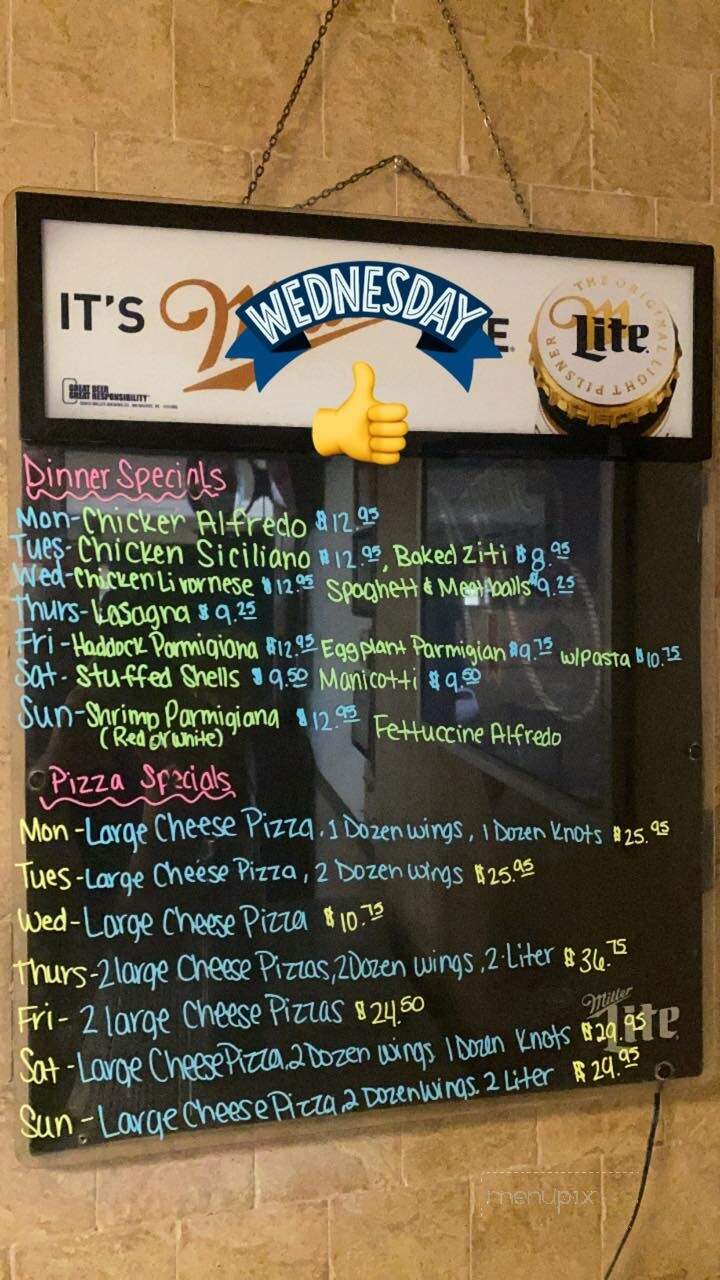 IT'S
WEDNESDAY
E.
THE ORIGINAL LIGHT PILSNER
Lite
GREAT BEER
GREAT RESPONSIBILITY
Dinner Specials
Mon-Chicken Alfredo $12.95
Tues-Chicken Siciliano $12.95, Baked Ziti $8.95
Wed-Chicken Livornese $12.95 Spaghetti & Meatballs $9.25
Thurs-Lasagna $9.25
Fri-Haddock Parmigiana $12.95 Eggplant Parmigian $9.75 w/Pasta $10.75
Sat-Stuffed Shells $9.50 Manicotti $9.50
Sun-Shrimp Parmigiana $12.95 Fettuccine Alfredo
(Red or White)
Pizza Specials
Mon-Large Cheese Pizza, 1 Dozen wings, 1 Dozen Knots $25.95
Tues-Large Cheese Pizza, 2 Dozen wings $25.95
Wed-Large Cheese Pizza $10.75
Thurs-2 large Cheese Pizzas, 2 Dozen wings, 2-Liter $36.75
Fri-2 large Cheese Pizzas $24.50
Miller
Lite
Sat-Large Cheese Pizza, 2 Dozen wings 1 Dozen Knots $29.95
Sun-Large Cheese Pizza, 2 Dozen Wings, 2 Liter $29.95
menupix